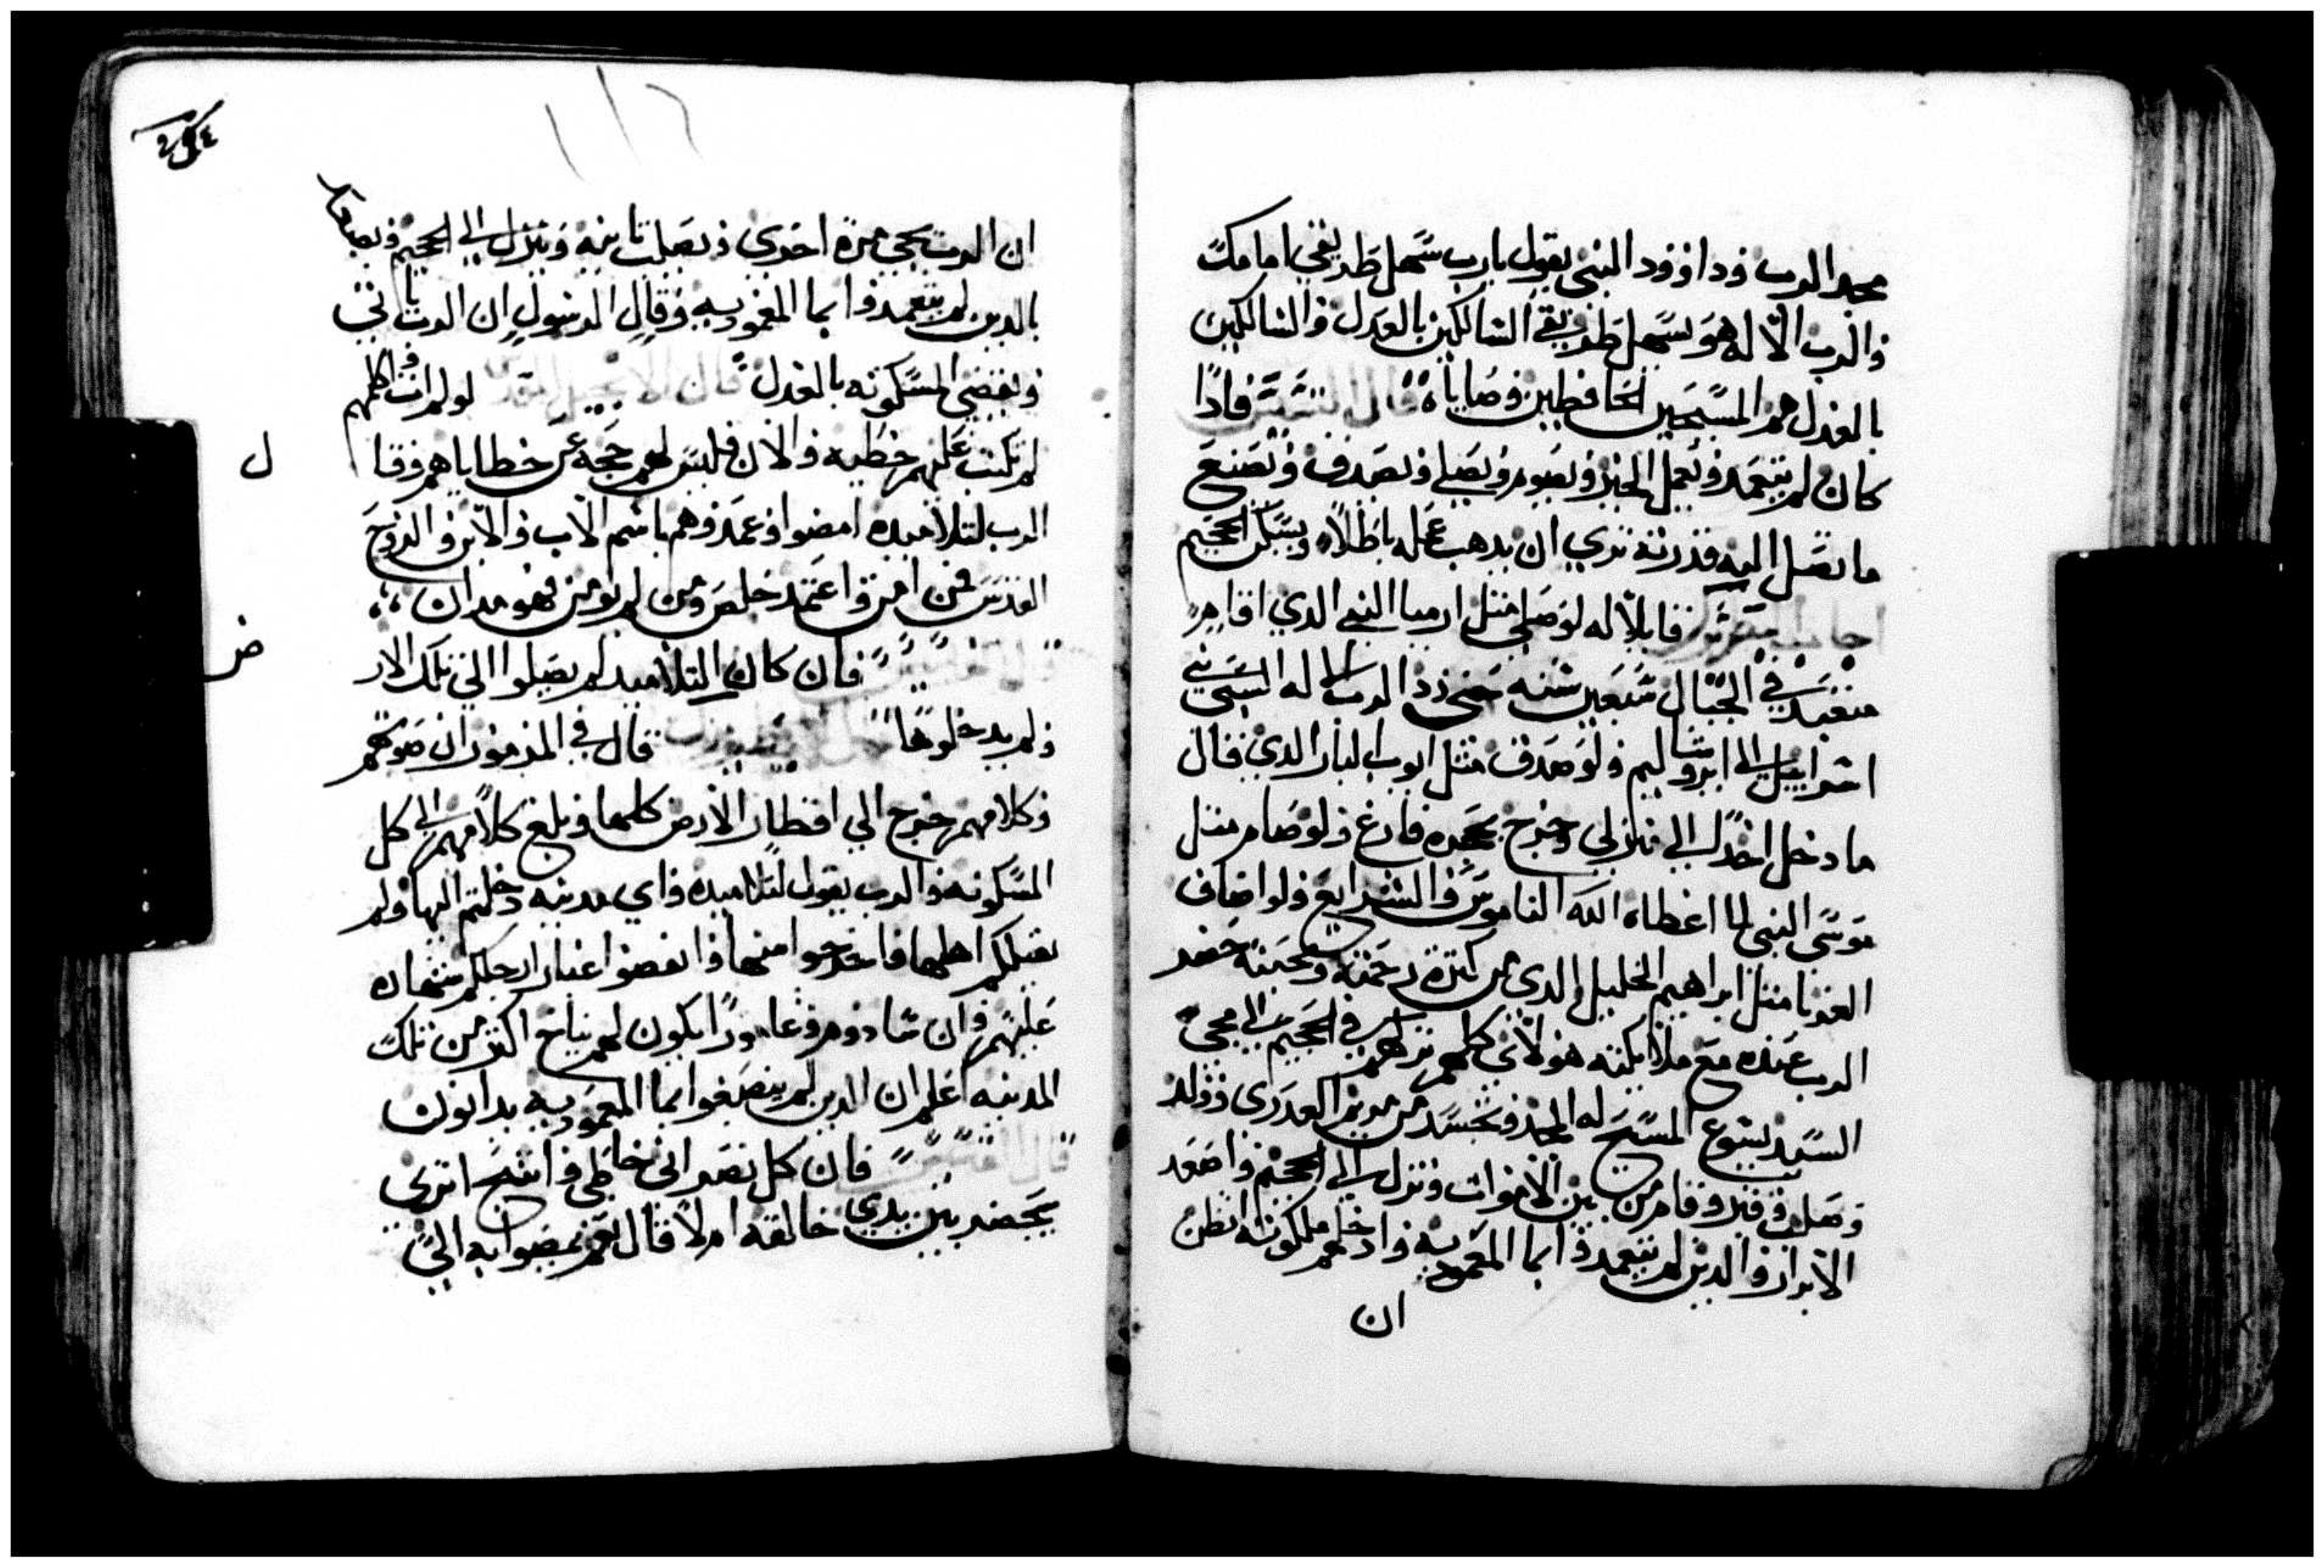 مجد الرب وداوود النبي يقول يارب سهل طريقي امامك
والرب الاله هو يسهل طريق السالكين بالعدل والسالكين
بالعدل هم المسيحيين الحافظين وصاياه فادا
كان لم يتعمد ويعمل الخير ويصوم ويصلي ويصدق ويصنع
ما تصل اليه قدرته تري ان يدهب عمله باطلا ويسكن الجحيم
قايلا له لو صلي مثل ارميا النبي الدي اقام
متعبد في الجبال سبعين سنه حتي رد الرب الاله السبي
اسراييل الي ايروشاليم ولو صدق مثل ايوب البار الدي قال
ما دخل احدا الي منزلي وخرج بحجره فارغ ولو صام مثل
موسي النبي لما اعطاه الله الناموس والشرايع ولو اضاف
الغربا مثل ابراهيم الخليل الدي من كترة رحمته ومحبته حضر
الرب عنده مع ملايكته هولاي كلهم نزلهم في الجحيم الي مجي
السيد يسوع المسيح له المجد وتجسد من مريم العدري وولد
وصلب وقبر وقام من بين الاموات ونزل الي الجحيم واصعد
الابرار والدين لم يتعمدوا بما المعموديه وادخلهم ملكوته اتظن
ان
ان الرب يجي مرة اخري ويصلب تانيه وينزل الي الجحيم ويصعد
بالدين لم يتعمدوا بما المعموديه وقال الرسول ان الرب ياتي
ويقضي المسكونه بالعدل قال الانجيل المقدس لو لم ات واكلمهم
لم تكن عليهم خطيه والان فليس لهم حجه عن خطاياهم وقال
الرب لتلاميده امضوا وعمدوهم باسم الاب والابن والروح
القدس فمن امن واعتمد خلص ومن لم يومن فهو مدان
فان كان التلاميد لم يصلوا الي تلك الارض
ولم يدخلوها قال في المزمور ان صوتهم
وكلامهم خرج الي اقطار الارض كلها وبلغ كلامهم الي كل
المسكونه والرب يقول لتلاميده واي مدينه دخلتم اليها ولم
يقبلكم اهلها فاخرجوا منها وانفضوا غبار ارجلكم شهاده
عليهم وان سادوم وعامورا يكون لهم نياح اكتر من تلك
المدينه اعلم ان الدين لم ينصبغوا بما المعموديه يدانون
فان كل نصراني خاطي واتسخ اتري
يحضر بين يدي خالقه ام لا قال نعم يمضوا به الي